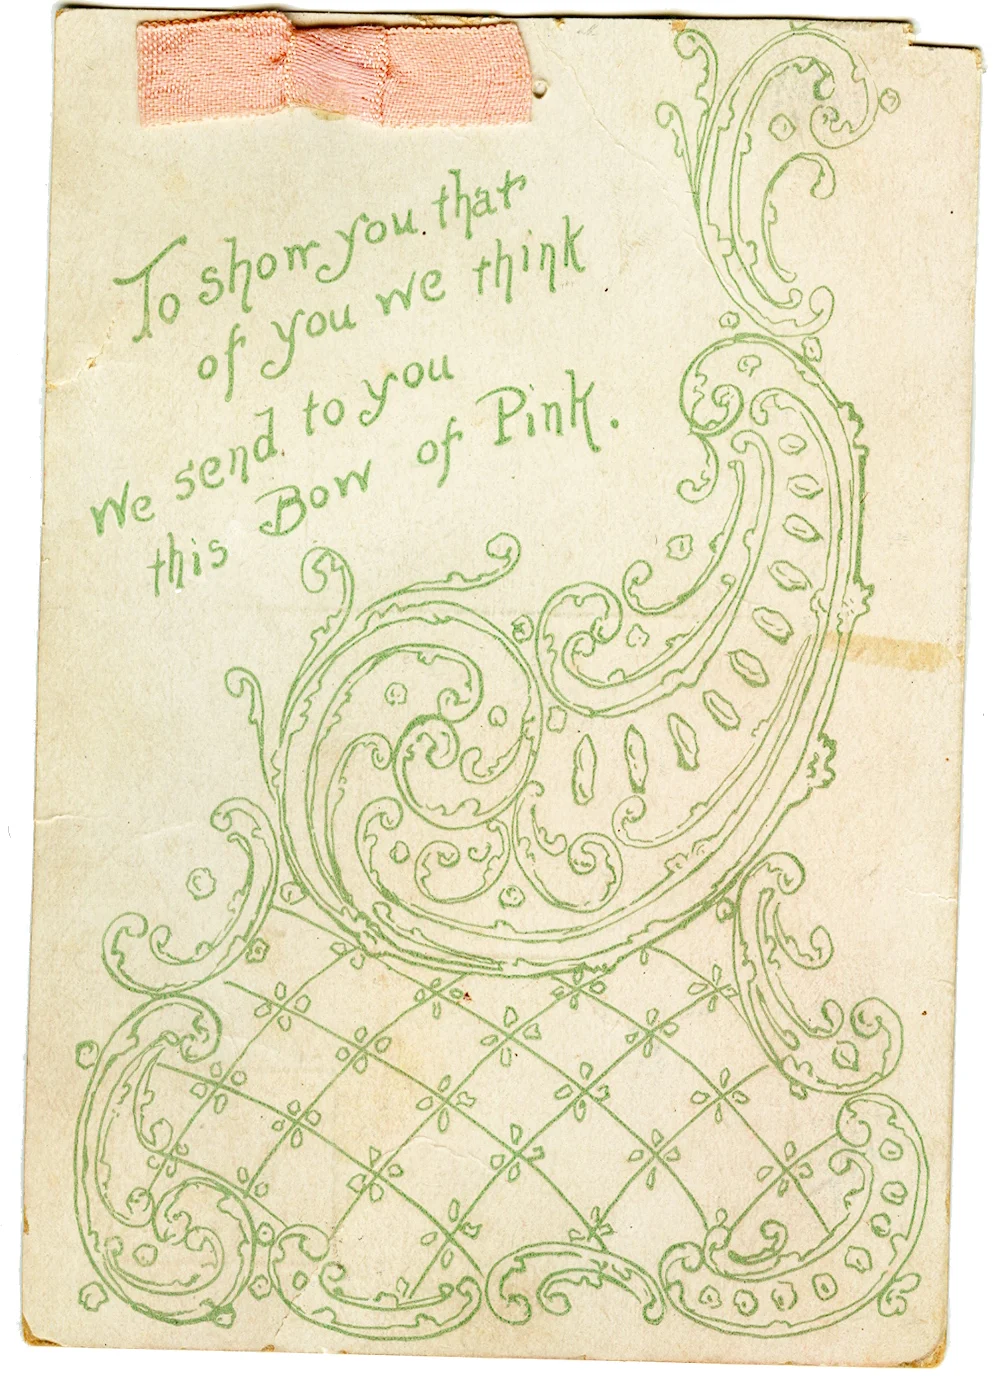 To show you that
of you we think
We send to you
this Bow of Pink.